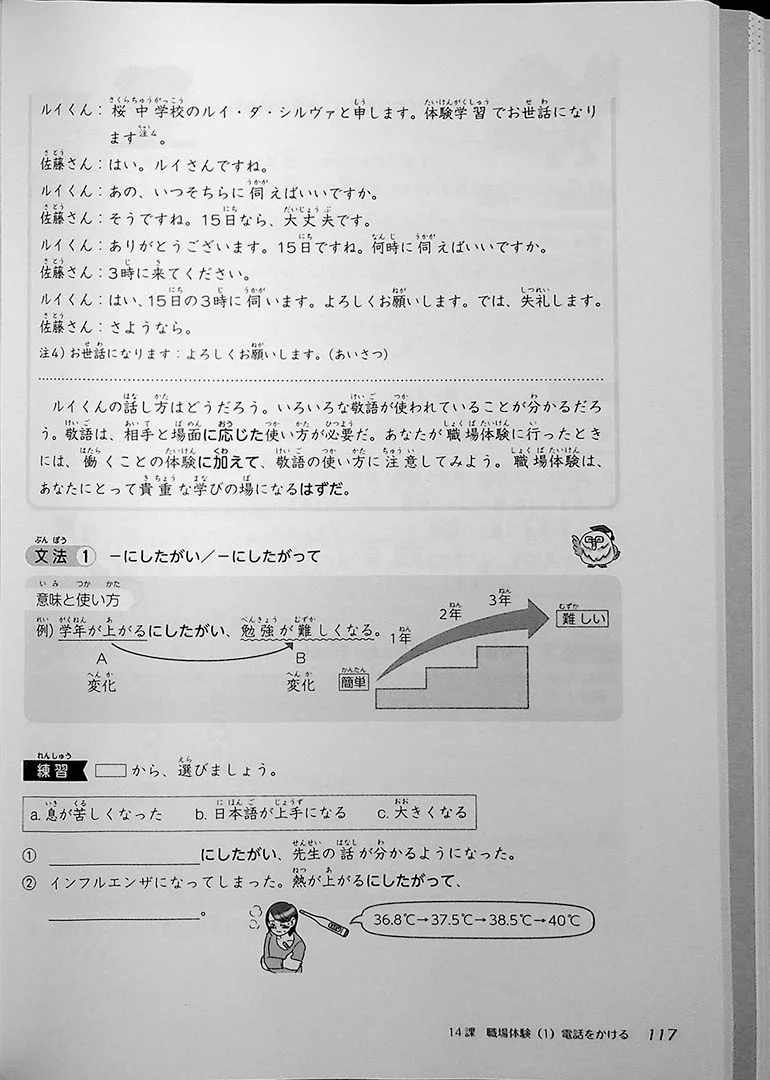 ルイくん：桜中学校のルイ・ダ・シルヴァと申します。体験学習でお世話になり
ます注4。
佐藤さん：はい。ルイさんですね。
ルイくん：あの、いつそちらに伺えばいいですか。
佐藤さん：そうですね。15日なら、大丈夫です。
ルイくん：ありがとうございます。15日ですね。何時に伺えばいいですか。
佐藤さん：3時に来てください。
ルイくん：はい、15日の3時に伺います。よろしくお願いします。では、失礼します。
佐藤さん：さようなら。
注4）お世話になります：よろしくお願いします。（あいさつ）
ルイくんの話し方はどうだろう。いろいろな敬語が使われていることが分かるだろ
う。敬語は、相手と場面に応じた使い方が必要だ。あなたが職場体験に行ったとき
には、働くことの体験に加えて、敬語の使い方に注意してみよう。職場体験は、
あなたにとって貴重な学びの場になるはずだ。
文法1 －にしたがい／－にしたがって
意味と使い方
例）学年が上がるにしたがい、勉強が難しくなる。
A B
変化 変化
簡単
1年
2年
3年
難しい
練習 から、選びましょう。
a.息が苦しくなった b.日本語が上手になる c.大きくなる
① にしたがい、先生の話が分かるようになった。
② インフルエンザになってしまった。熱が上がるにしたがって、
。
36.8℃→37.5℃→38.5℃→40℃
14課 職場体験（1）電話をかける 117